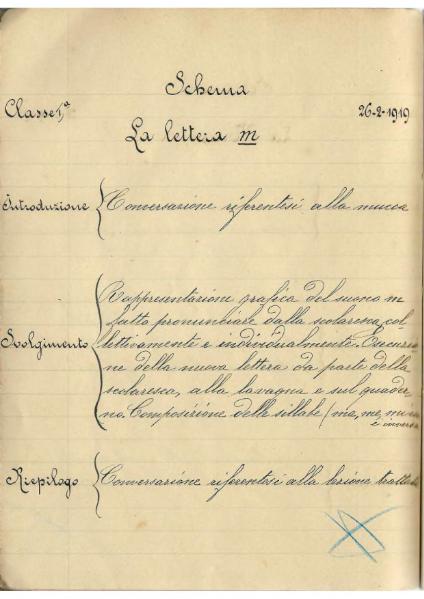 Schema
Classe I,ª
26-2-1919
La lettera m
Introduzione
Conversazione riferentesi alla mucca
Svolgimento
Rappresentazione grafica del suono m
fatto pronunciale dalla scolaresca, col-
lettivamente e individualmente. Esecuzio-
ne della nuova lettera da parte della
scolaresca, alla lavagna e sul quader-
no. Composizione delle sillabe (ma, me, mi
e inversa
Riepilogo
Conversazione riferentesi alla lezione